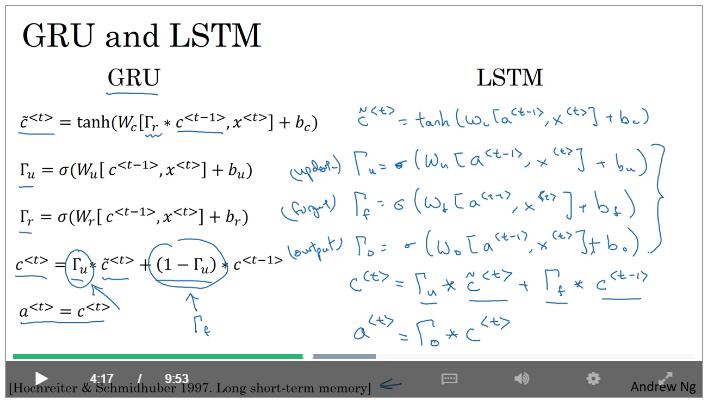 GRU and LSTM
GRU
c̃^<t> = tanh(W_c[Γ_r * c^<t-1>, x^<t>] + b_c)
Γ_u = σ(W_u[ c^<t-1>, x^<t>] + b_u)
Γ_r = σ(W_r[ c^<t-1>, x^<t>] + b_r)
c^<t> = Γ_u * c̃^<t> + (1 − Γ_u) * c^<t-1>
Γ_f
a^<t> = c^<t>
LSTM
c̃^<t> = tanh(W_c[a^<t-1>, x^<t>] + b_c)
(update) Γ_u = σ(W_u[a^<t-1>, x^<t>] + b_u)
(forget) Γ_f = σ(W_f[a^<t-1>, x^<t>] + b_f)
(output) Γ_o = σ(W_o[a^<t-1>, x^<t>] + b_o)
c^<t> = Γ_u * c̃^<t> + Γ_f * c^<t-1>
a^<t> = Γ_o * c^<t>
4:17 / 9:53
[Hochreiter & Schmidhuber 1997. Long short-term memory]
Andrew Ng